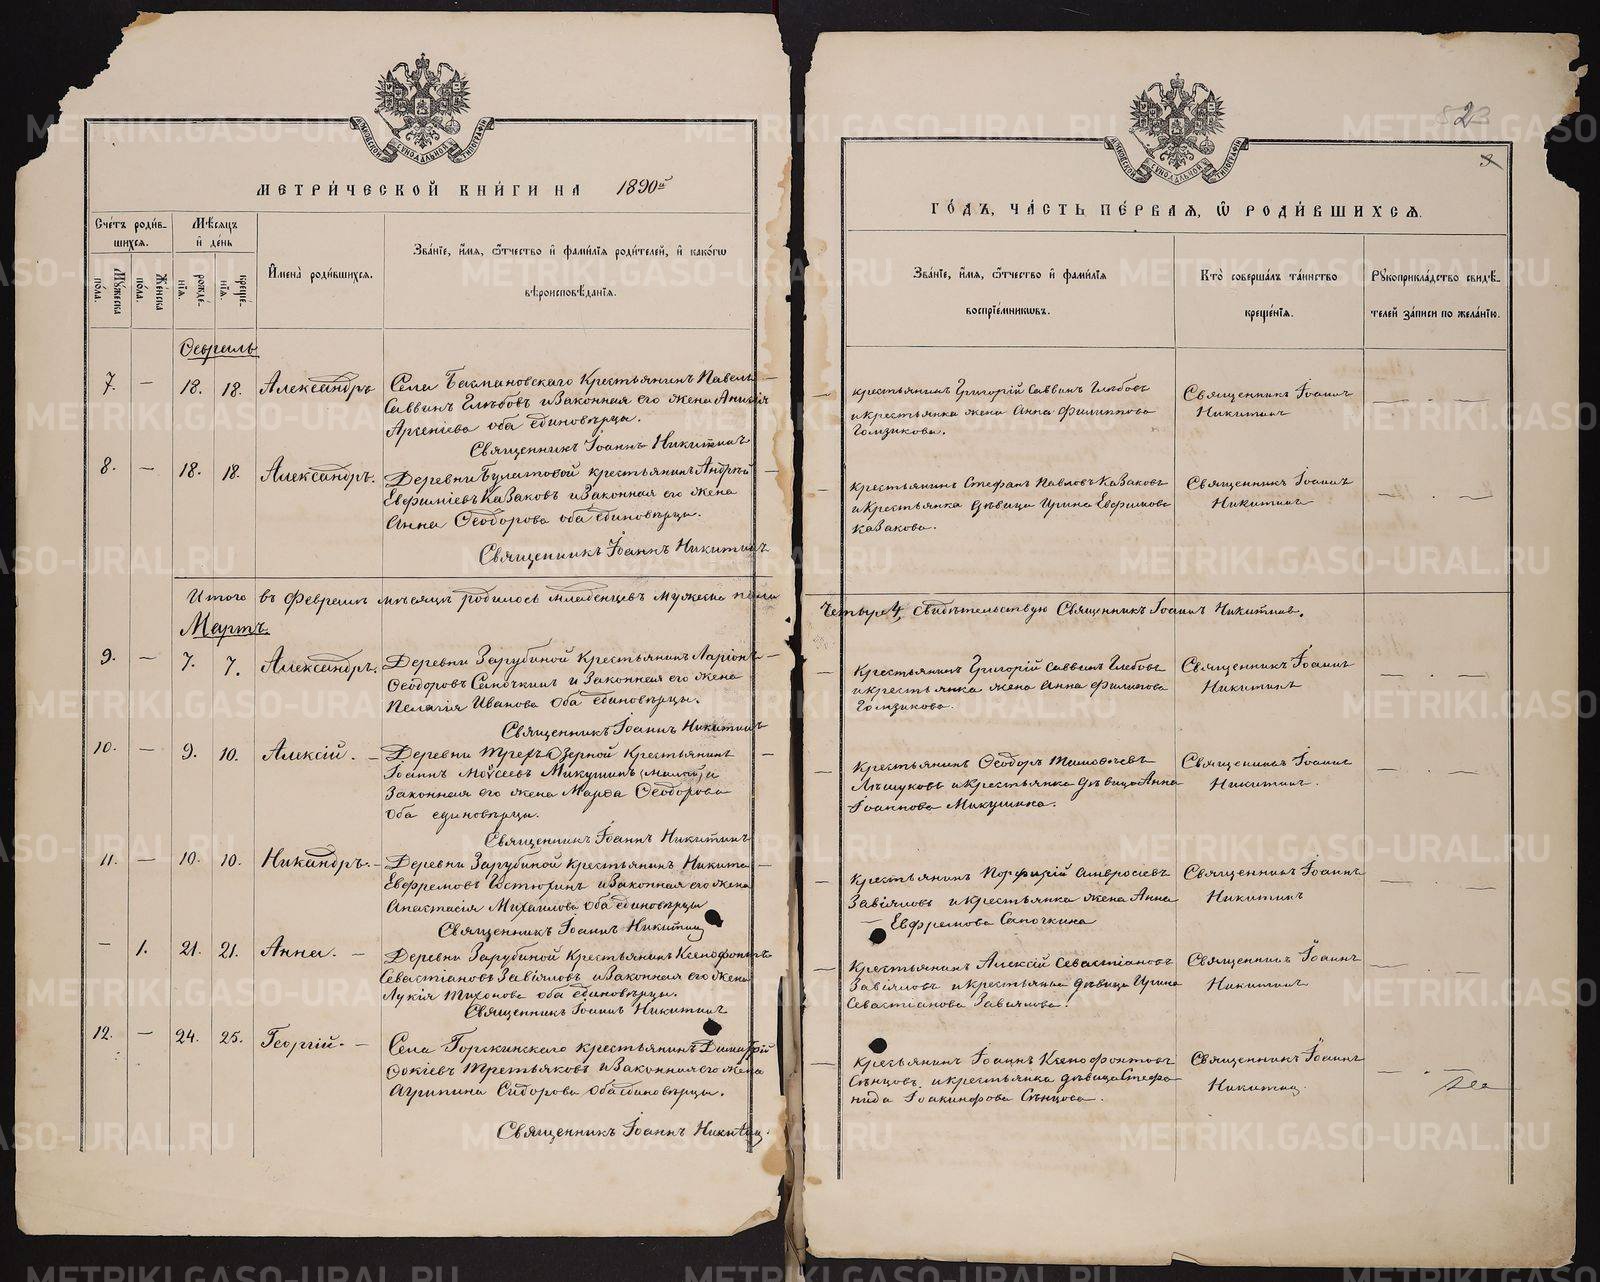 МЕТРИ́ЧЕСКОЙ КНИ́ГИ НА 1890й
Сче́тъ роди́в-
шихся.
Мѣ́сяцъ
и де́нь
Му́жеска
по́ла.
Же́нска
по́ла.
рожде́-
нїя.
креще́-
нїя.
Имена̀ роди́вшихся.
Зва́нїе, и́мя, ѻ҆́тчество и фами́лїя роди́телей, и како́гѡ
вѣроисповѣ́данїя.
Февраль
7. — 18. 18. Александръ
Села Басмановскаго Крестьянинъ Павелъ
Саввинъ Глѣбовъ и Законная его жена
Арсеніева оба единовѣрцы.
Священникъ Іоаннъ Никитинъ
8. — 18. 18. Александръ.
Деревни Булатовой крестьянинъ Андрей
Евфиміевъ Казаковъ и Законная его жена
Анна Ѳеодорова оба единовѣрцы.
Священникъ Іоаннъ Никитинъ
Итого въ Февралѣ мѣсяцѣ родилось младенцевъ мужеска пола
Мартъ.
9. — 7. 7. Александръ.
Деревни Зарубиной Крестьянинъ Ларіонъ
Ѳеодоровъ Сапочкинъ и Законная его жена
Пелагія Иванова оба единовѣрцы.
Священникъ Іоаннъ Никитинъ
10. — 9. 10. Алексій. —
Деревни Трехъ Озерной Крестьянинъ
Іоаннъ Моѵсеевъ Микушинъ (малый) и
Законная его жена Марѳа Ѳеодорова
оба единовѣрцы.
Священникъ Іоаннъ Никитинъ
11. — 10. 10. Никандръ. —
Деревни Зарубиной Крестьянинъ Никита
Евфремовъ Гостюхинъ и Законная его жена
Анастасія Михаилова оба единовѣрцы
Священникъ Іоаннъ Никитинъ
— 1. 21. 21. Анна. —
Деревни Зарубиной Крестьянинъ Ксенофонтъ
Севастіановъ Завіяловъ и Законная его жена
Лукія Тихонова оба единовѣрцы.
Священникъ Іоаннъ Никитинъ
12. — 24. 25. Георгій. —
Села Горскинскаго крестьянинъ Димитрій
Фокіевъ Третьяковъ и Законная его жена
Агрипина Сидорова оба единовѣрцы.
Священникъ Іоаннъ Никитинъ.
23
3
ГО́ДЪ, ЧА́СТЬ ПЕ́РВАЯ, Ѽ РОДИ́ВШИХСЯ.
Зва́нїе, и́мя, ѻ҆́тчество и фами́лїя
воспрїе́мникѡвъ.
Кто̀ соверша́лъ та́инство
креще́нїя.
Рукоприкла́дство свидѣ́-
телей за́писи по жела́нїю.
крестьянинъ Григорій Саввинъ Глѣбовъ
и крестьянка жена Анна Филиппова
Гомзикова.
Священникъ Іоаннъ
Никитинъ
Крестьянинъ Стефанъ Павловъ Казаковъ
и Крестьянка дѣвица Ирина Евфимова
Казакова.
Священникъ Іоаннъ
Никитинъ
Четыре 4, свидѣтельствую Священникъ Іоаннъ Никитинъ.
Крестьянинъ Григорій Саввинъ Глебовъ
и крестьянка жена Анна Филипова
Гомзикова.
Священникъ Іоаннъ
Никитинъ
Крестьянинъ Ѳеодоръ Тимоѳеевъ
и крестьянка дѣвица Анна
Іоаннова Микушина.
Священникъ Іоаннъ
Никитинъ.
Крестьянинъ Порфирій Амвросіевъ
Завіяловъ и крестьянка жена Анна
— Евфремова Сапочкина
Священникъ Іоаннъ
Никитинъ
Крестьянинъ Алексій Севастіановъ
Завіяловъ и крестьянка дѣвица Ирина
Севастіанова Завіялова.
Священникъ Іоаннъ
Никитинъ
Крестьянинъ Іоаннъ Ксенофонтовъ
Сѣнцовъ и крестьянка дѣвица Стефа-
нида Іоакинфова Сѣнцова.
Священникъ Іоаннъ
Никитинъ.
METRIKI.GASO-URAL.RU